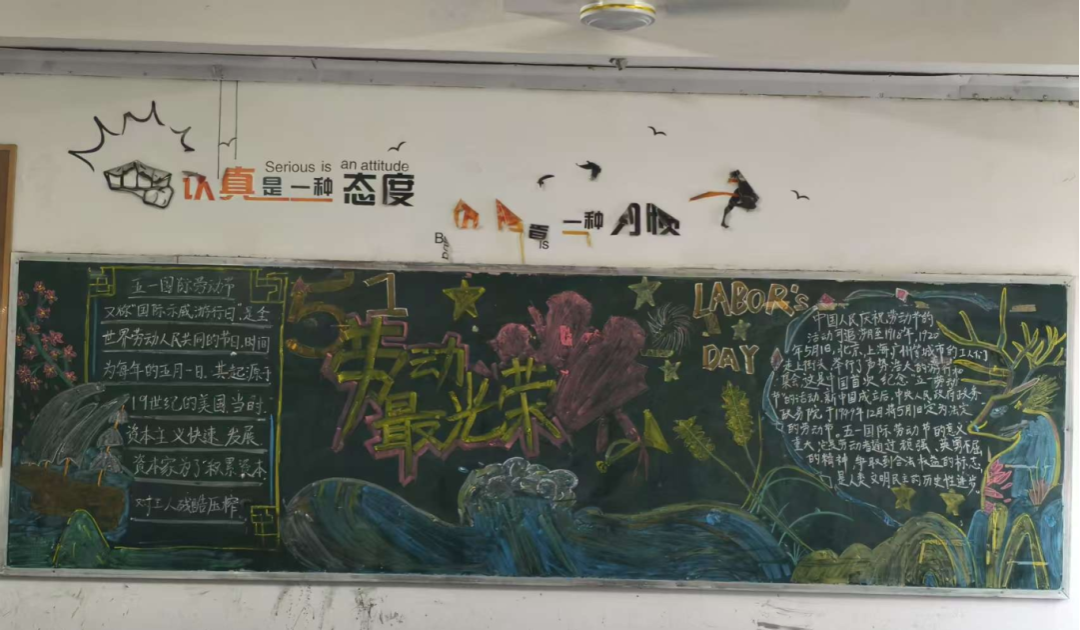 Serious is an attitude
认真是一种态度
一种习惯
is
五一国际劳动节
又称"国际示威游行日",是全
世界劳动人民共同的节日,时间
为每年的五月一日.其起源于
19世纪的美国,当时,
资本主义快速发展
资本家为了积累资本
对工人残酷压榨
51
劳动
最光荣
LABOR's
DAY
中国人民庆祝劳动节的
活动可追溯至1918年,1920
年5月1日,北京,上海,广州等城市的工人们
走上街头,举行了声势浩大的游行和
集会,这是中国首次纪念五一劳动
节的活动,新中国成立后,中央人民政府政务
政务院于1949年12月将5月1日定为法定
的劳动节,五一国际劳动节的意义
重大,它是劳动者通过顽强、英勇不屈
的精神,争取到合法权益的标志,
是人类文明民主的历史性进步,